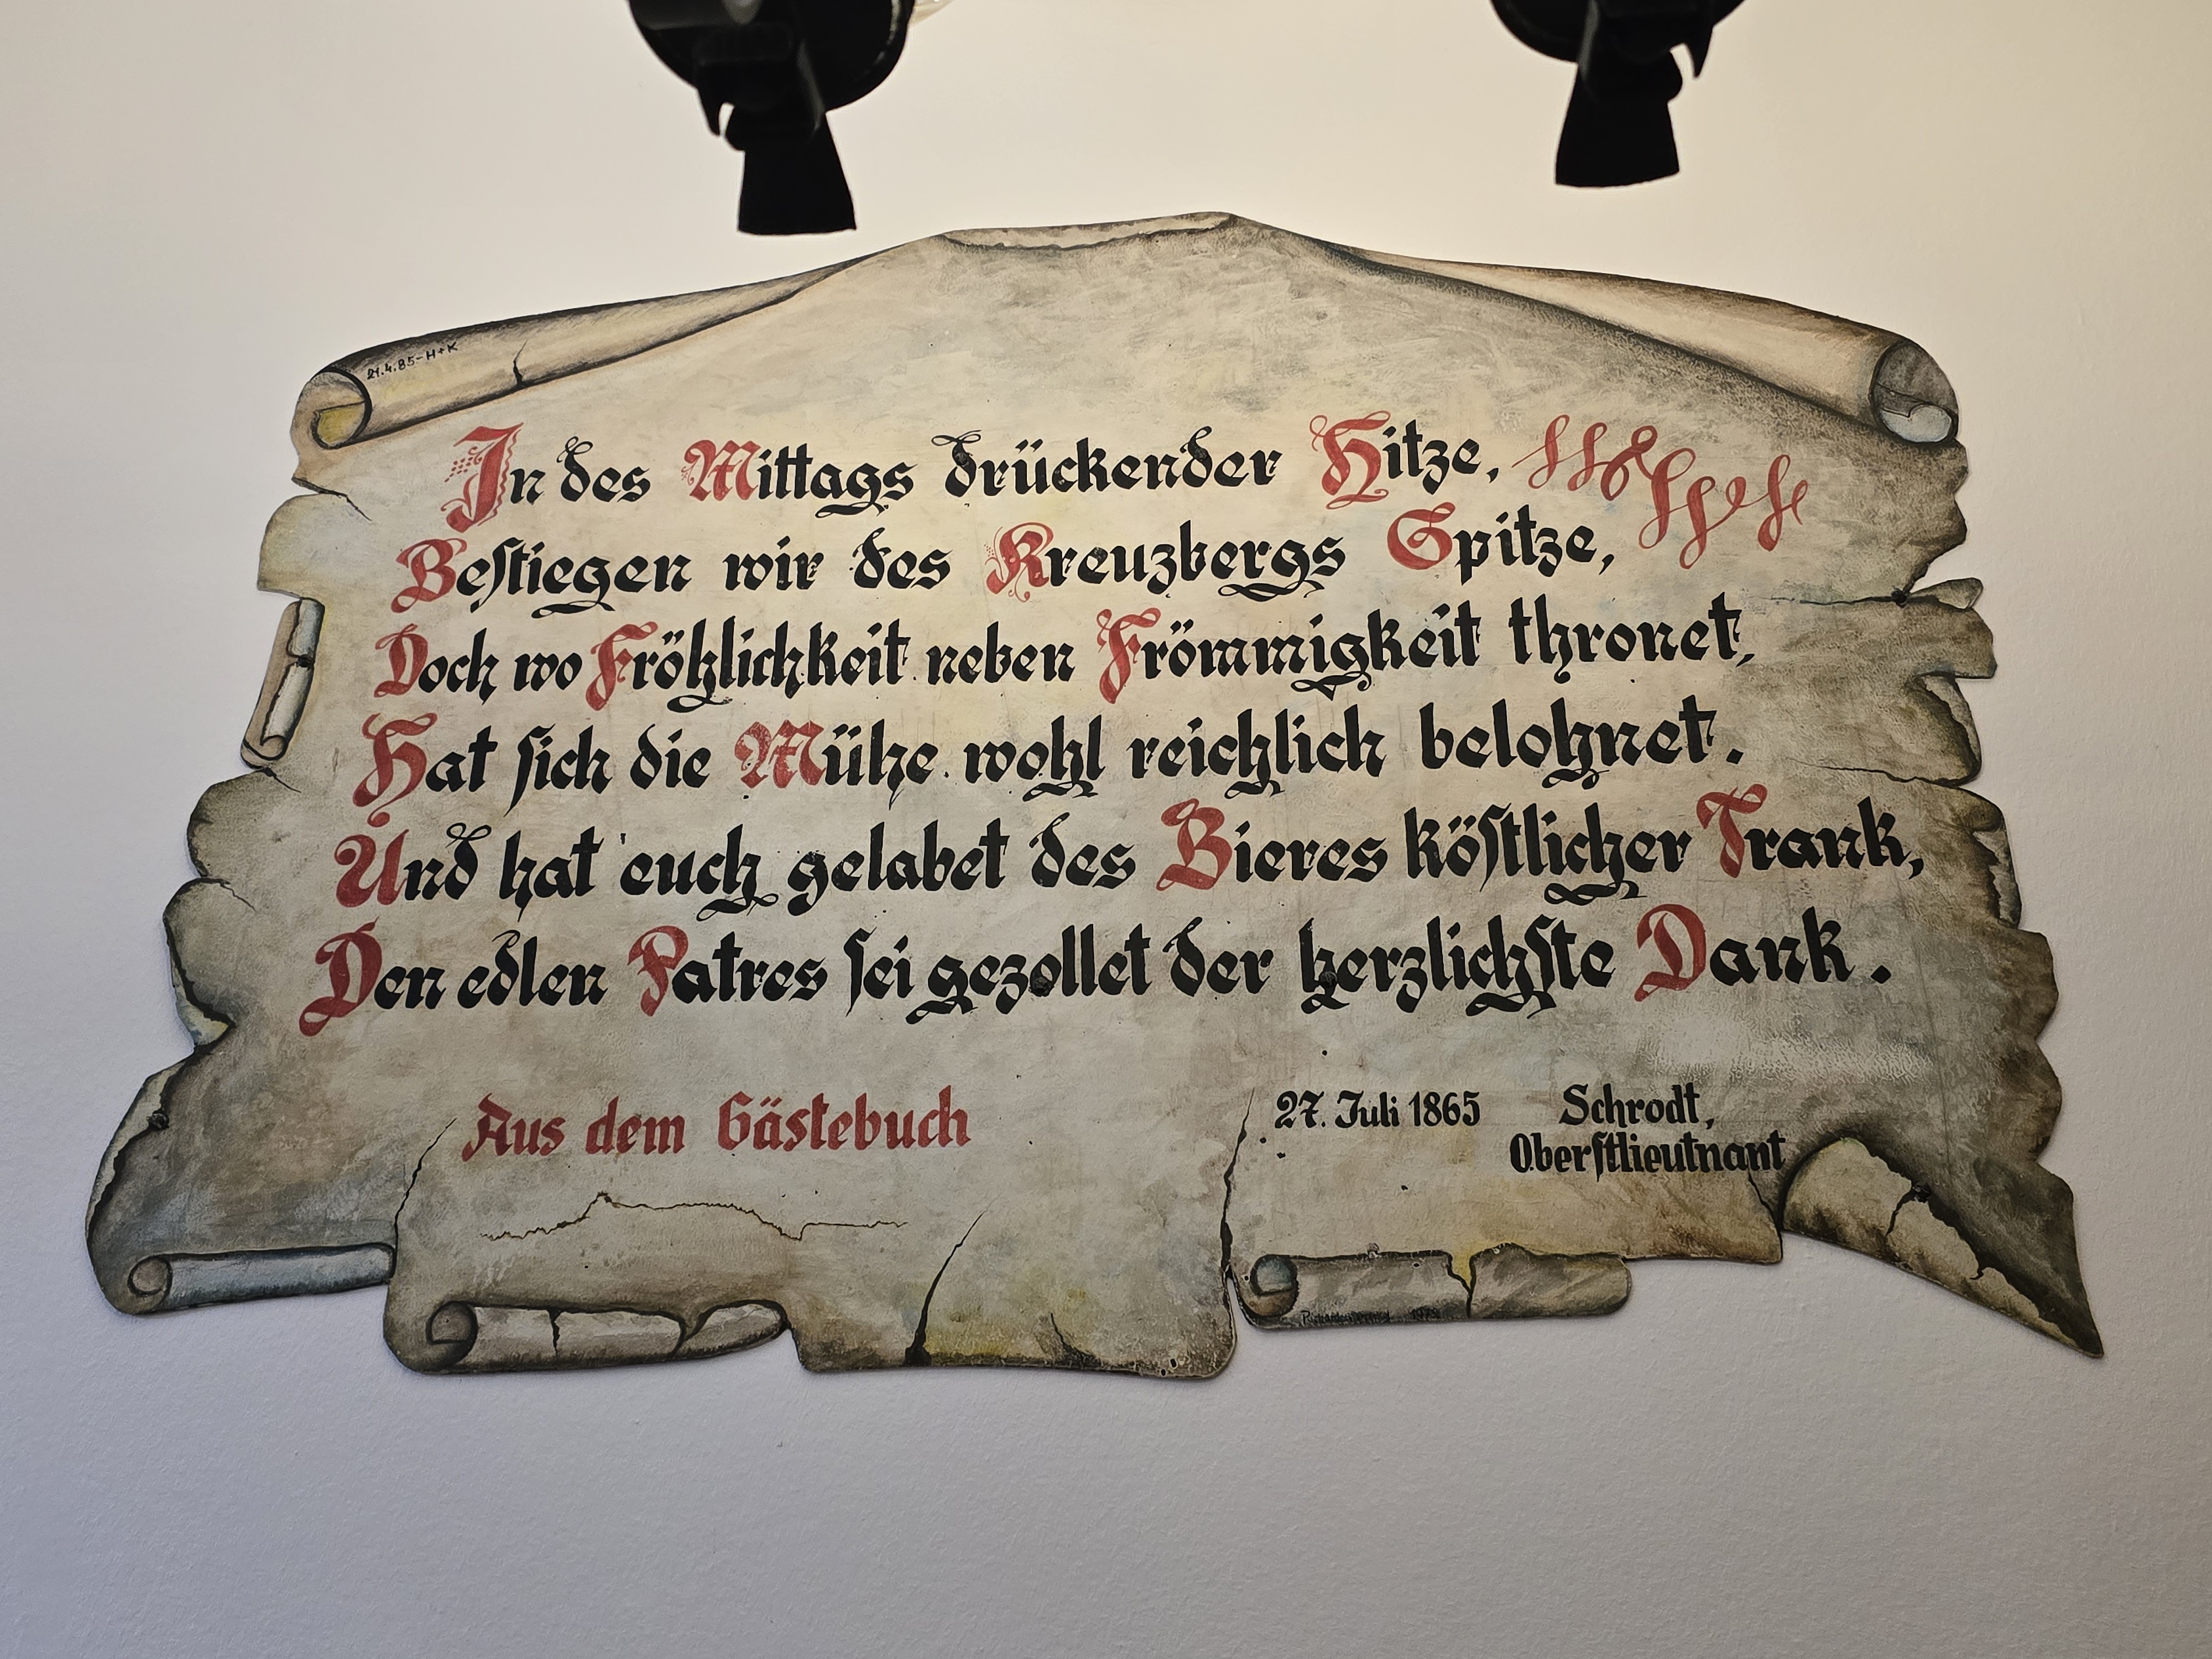 21.4.85-H+K
In des Mittags drückender Hitze,
Beſtiegen wir des Kreuzbergs Spitze,
Doch wo Fröhlichkeit neben Frömmigkeit thronet,
Hat ſich die Mühe wohl reichlich belohnet.
Und hat euch gelabet des Bieres köſtlicher Trank,
Den edlen Patres ſei gezollet der herzlichſte Dank.
Aus dem Gästebuch
27. Juli 1865 Schrodt,
Oberſtlieutnant